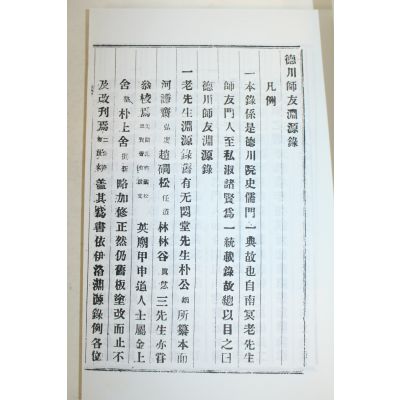 德川師友淵源錄
凡例
一本錄係是德川院史儒門一典故也自南冥老先生
師友門人至私淑諸賢爲一統載錄故總以目之曰
德川師友淵源錄
一老先生淵源錄舊有无悶堂先生朴公絪所纂本而
河謙齋弘度趙澗松任道林林谷眞怤三先生亦嘗
發校焉英廟甲申道人士屬金上
舍朴上舍略加修正然仍舊板塗改而止不
及改刊焉盖其爲書依伊洛淵源錄例各位